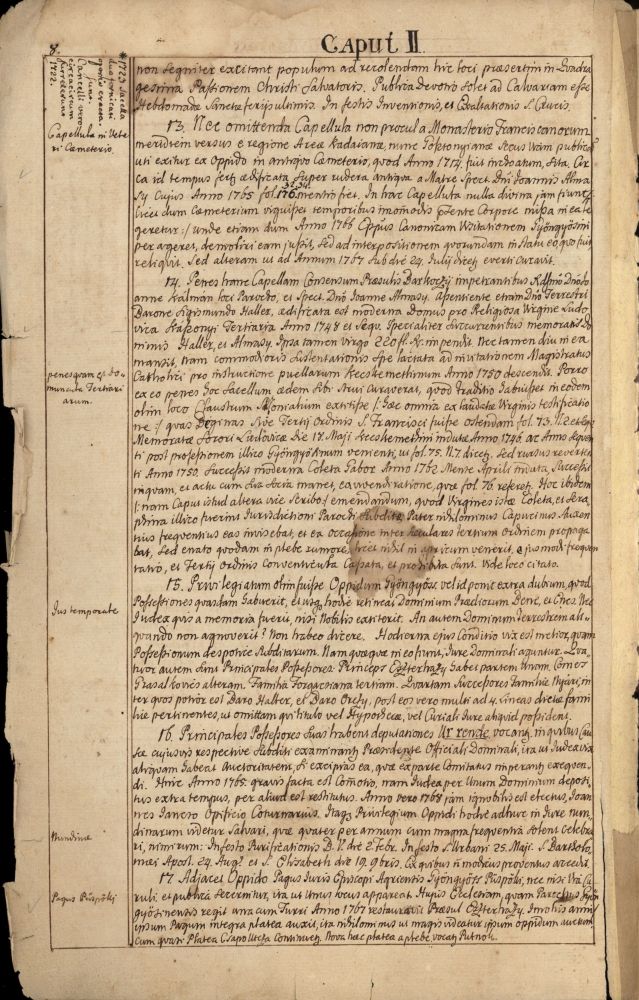 8.
Caput II.
* 1723 Sacella
duo fornicari
curata.
1722.
Capellula in Vete
ri Cæmeterio.
non segniter excitant populum ad recolendam hic loci præsertim in Quadra
gesima Passionem Christi Salvatoris. Publica devotio solet ad Calvariam esse
Hebdomada Sancta ferijs ultimis. In festis Inventionis, et Exaltationis S. Crucis.
13. Nec omittenda Capellula non procul a Monasterio Franciscanorum
meridiem versus e regione Areæ Kadaianæ, nunc Tottönyianæ secus viam publicam
uti exitur ex Oppido in antiquo Cæmeterio, quod Anno 1754 fuit indicatum, sita. Cir
ca id tempus fertur ædificata super rudera antiqua a Matre Spect. Dni Joannis Alma
sy cujus Anno 1765 fol. 176 mentio fiet. In hac Capellula nulla divina jam fiunt,
licet dum Cæmeterium viguisset temporibus
geretur :/ unde etiam dum Anno 1766 Eppus Canonicam Visitationem Gyöngyösini
perageret, demoliri eam jussit, sed ad interpositionem quorundam in statu eo, quo fuit
reliquit. Sed alteram ut ad Annum 1767 sub die 24. Julij dicetur everti curavit.
14. Penes hanc Capellam Consensum Præsulis Barkoczy impetrantibus Rdssmo Dno Jo
anne Kalmán loci Parocho, et Spect. Dno Joanne Almasy. Assentiente etiam Dno Terrestri
Barone Sigismundo Haller, ædificata est moderna Domus pro Religiosa Virgine Ludo
vica Kassonyi Tertiaria Anno 1748 et sequ. Specialiter succurrentibus memoratis Do
minis Haller, et Almasy. Ipsa tamen virgo 220 fl. R. impendit. Nec tamen diu in ea
mansit, nam commodioris sustentationis spe lactata ad invitationem Magistratus
Catholici pro instructione puellarum Kecskemethinum Anno 1750 descendit. Porro
ea eo penes hoc sacellum ædem sibi strui curaverat, quod traditio habuisset in eodem
olim loco Claustrum Monialium extitisse /: hæc omnia ex laudatæ Virginis testificatio
ne :/ quas Beginas sive Tertij Ordinis S. Francisci fuisse ostendam fol. 73. N. 2 et seqq.
Memoratæ Sorori Ludovicæ Die 17. Maji Kecskemethini indutæ Anno 1746 ac Anno sequen
ti post professionem illico Gyöngyösinum venienti, ut fol. 75. N. 7. dicetur, sed rursus reverten
ti Anno 1750 successit moderna Coleta Gabor Anno 1762 Mense Aprili induta, successit
inquam, et actu cum sua Socia manet, ea vivendi ratione, quæ fol. 76 referetur. Hoc ibidem
/: nam Caput istud altera vice scribo :/ emendandum, quod Virgines istæ Coleta, et Sera
phina illico fuerint Jurisdictioni Parochi subditæ, Pater nihilominus Capucinus Auxen
tius frequentius eas invisebat, et ea occasione inter sæculares tertium Ordinem propaga
bat, sed enato quodam in plebe rumore, licet nihil in apricum venerit, ejusmodi frequen
tatio, et Tertij Ordinis Conventicula cassata, et prohibita sunt. Vide loco citato.
penes eam est Do
muncula Tertiari
arum.
15. Privilegiatum olim fuisse Oppidum Gyöngyöss vel id ponit extra dubium, quod
Possessiones quasdam habuerit, et usque hodie retineat Dominium Prædiorum Bene, et Cner. Nec
Judex quis a memoria fuerit, nisi Nobilis extiterit. An autem Dominum terrestrem ali
quando non agnoverit? Non habeo dicere. Hodierna ejus Conditio vix est melior, quam
Possessionum despotice subditarum. Nam quæque in eo fiunt, Jure Dominali aguntur. Qua
tuor autem sunt Principales Possessores. Princeps Eszterhazy habet partem unam. Comes
Grasalkovics alteram. Familia Forgacsiana tertiam. Quartam successores Familiæ Nyári, in
ter quos potior est Baro Haller, et Baro Orczy, post eos vero multi ad 4. lineas dictæ fami
liæ pertinentes, ut omittam qui titulo vel Hypothecæ, vel Curiali Jure aliquid possident.
Jus temporale
16. Principales Possessores suas habent deputationes Ur rende vocant, in quibus cau
sæ cujusvis respective subditi examinantur Præsidente Officiali Dominali, ita ut Judex vix
aliquam habeat Auctoritatem, si excipias ea, quæ ex parte Comitatus imperantur exequen
di. Hinc Anno 1765. gravis facta est Comotio, nam Judex per unum Dominium deposi
tus extra tempus, per aliud est restitutus. Anno vero 1768 jam ignobilis est electus, Joan
nes Jancso Opificio Coturnarius. Itaque Privilegium Oppidi hodie adhuc in Jure nun
dinarum videtur salvari, quæ quater per annum cum magna frequentia solent celebra
ri, nimirum: In festo Purificationis B.V. die 2. Febr. In festo S. Urbani 25. Maji. S. Bartholo
mæi Apost. 24. Aug. et S. Elisabeth die 19. 9bris. Ex quibus non modicus proventus accedit.
Nundinæ
17. Adjacet Oppido Pagus Juris Episcopi Agriensis Gyöngyöss Püspöki, nec nisi via
et publica secernitur, ita ut unus locus appareat. Hujus Ecclesiam, quam Parochus Gyön
gyösinensis regit una cum Turri Anno 1767 restauravit Præsul Eszterházy. Imo his annis
ipsum Pagum integra platea auxit, ita nihilominus ut magis videatur ipsum oppidum auctum
cum quasi Platea Csapo Utcza continuetur. Nova hæc platea a plebe vocatur Putnok.
Pagus Püspöki